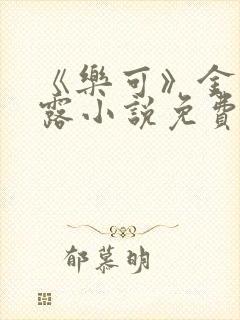 《樂可》金
露小說免費
郁慕明